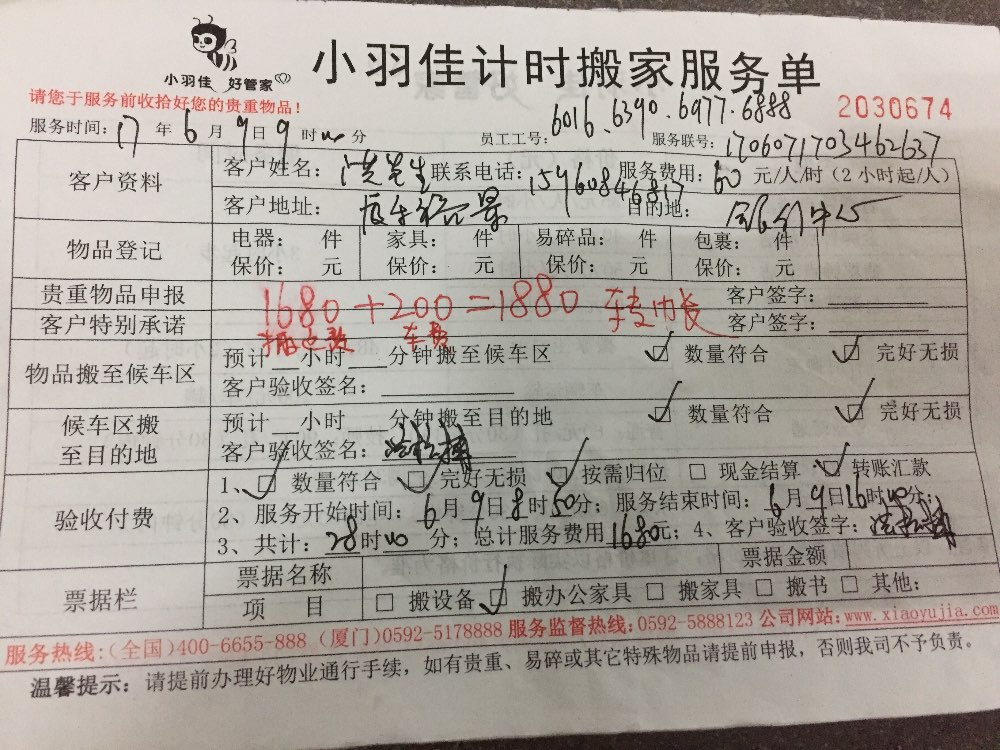 小羽佳 好管家
小羽佳计时搬家服务单
请您于服务前收拾好您的贵重物品！
6016.6390.6977.6888
2030674
服务时间：17年6月9日9时00分 员工工号： 服务联号：1706071703462637
客户资料
客户姓名：洪先生 联系电话：15960846817 服务费用：60元/人/时（2小时起/人）
客户地址： 目的地：
物品登记
电器： 件 家具： 件 易碎品： 件 包裹： 件
保价： 元 保价： 元 保价： 元 保价： 元
贵重物品申报 客户签字：
1680+200=1880
客户特别承诺 客户签字：
车费
物品搬至候车区
预计 小时 分钟搬至候车区 数量符合 完好无损
客户验收签名：
候车区搬至目的地
预计 小时 分钟搬至目的地 数量符合 完好无损
客户验收签名：
验收付费
1、 数量符合 完好无损 按需归位 现金结算 转账汇款
2、服务开始时间：6月9日8时50分；服务结束时间：6月9日16时00分；
3、共计：28时00分；总计服务费用1680元；4、客户验收签字：
票据栏
票据名称 票据金额
项 目 搬设备 搬办公家具 搬家具 搬书 其他：
服务热线：（全国）400-6655-888（厦门）0592-5178888 服务监督热线：0592-5888123 公司网站：www.xiaoyujia.com
温馨提示：请提前办理好物业通行手续，如有贵重、易碎或其它特殊物品请提前申报，否则我司不予负责。